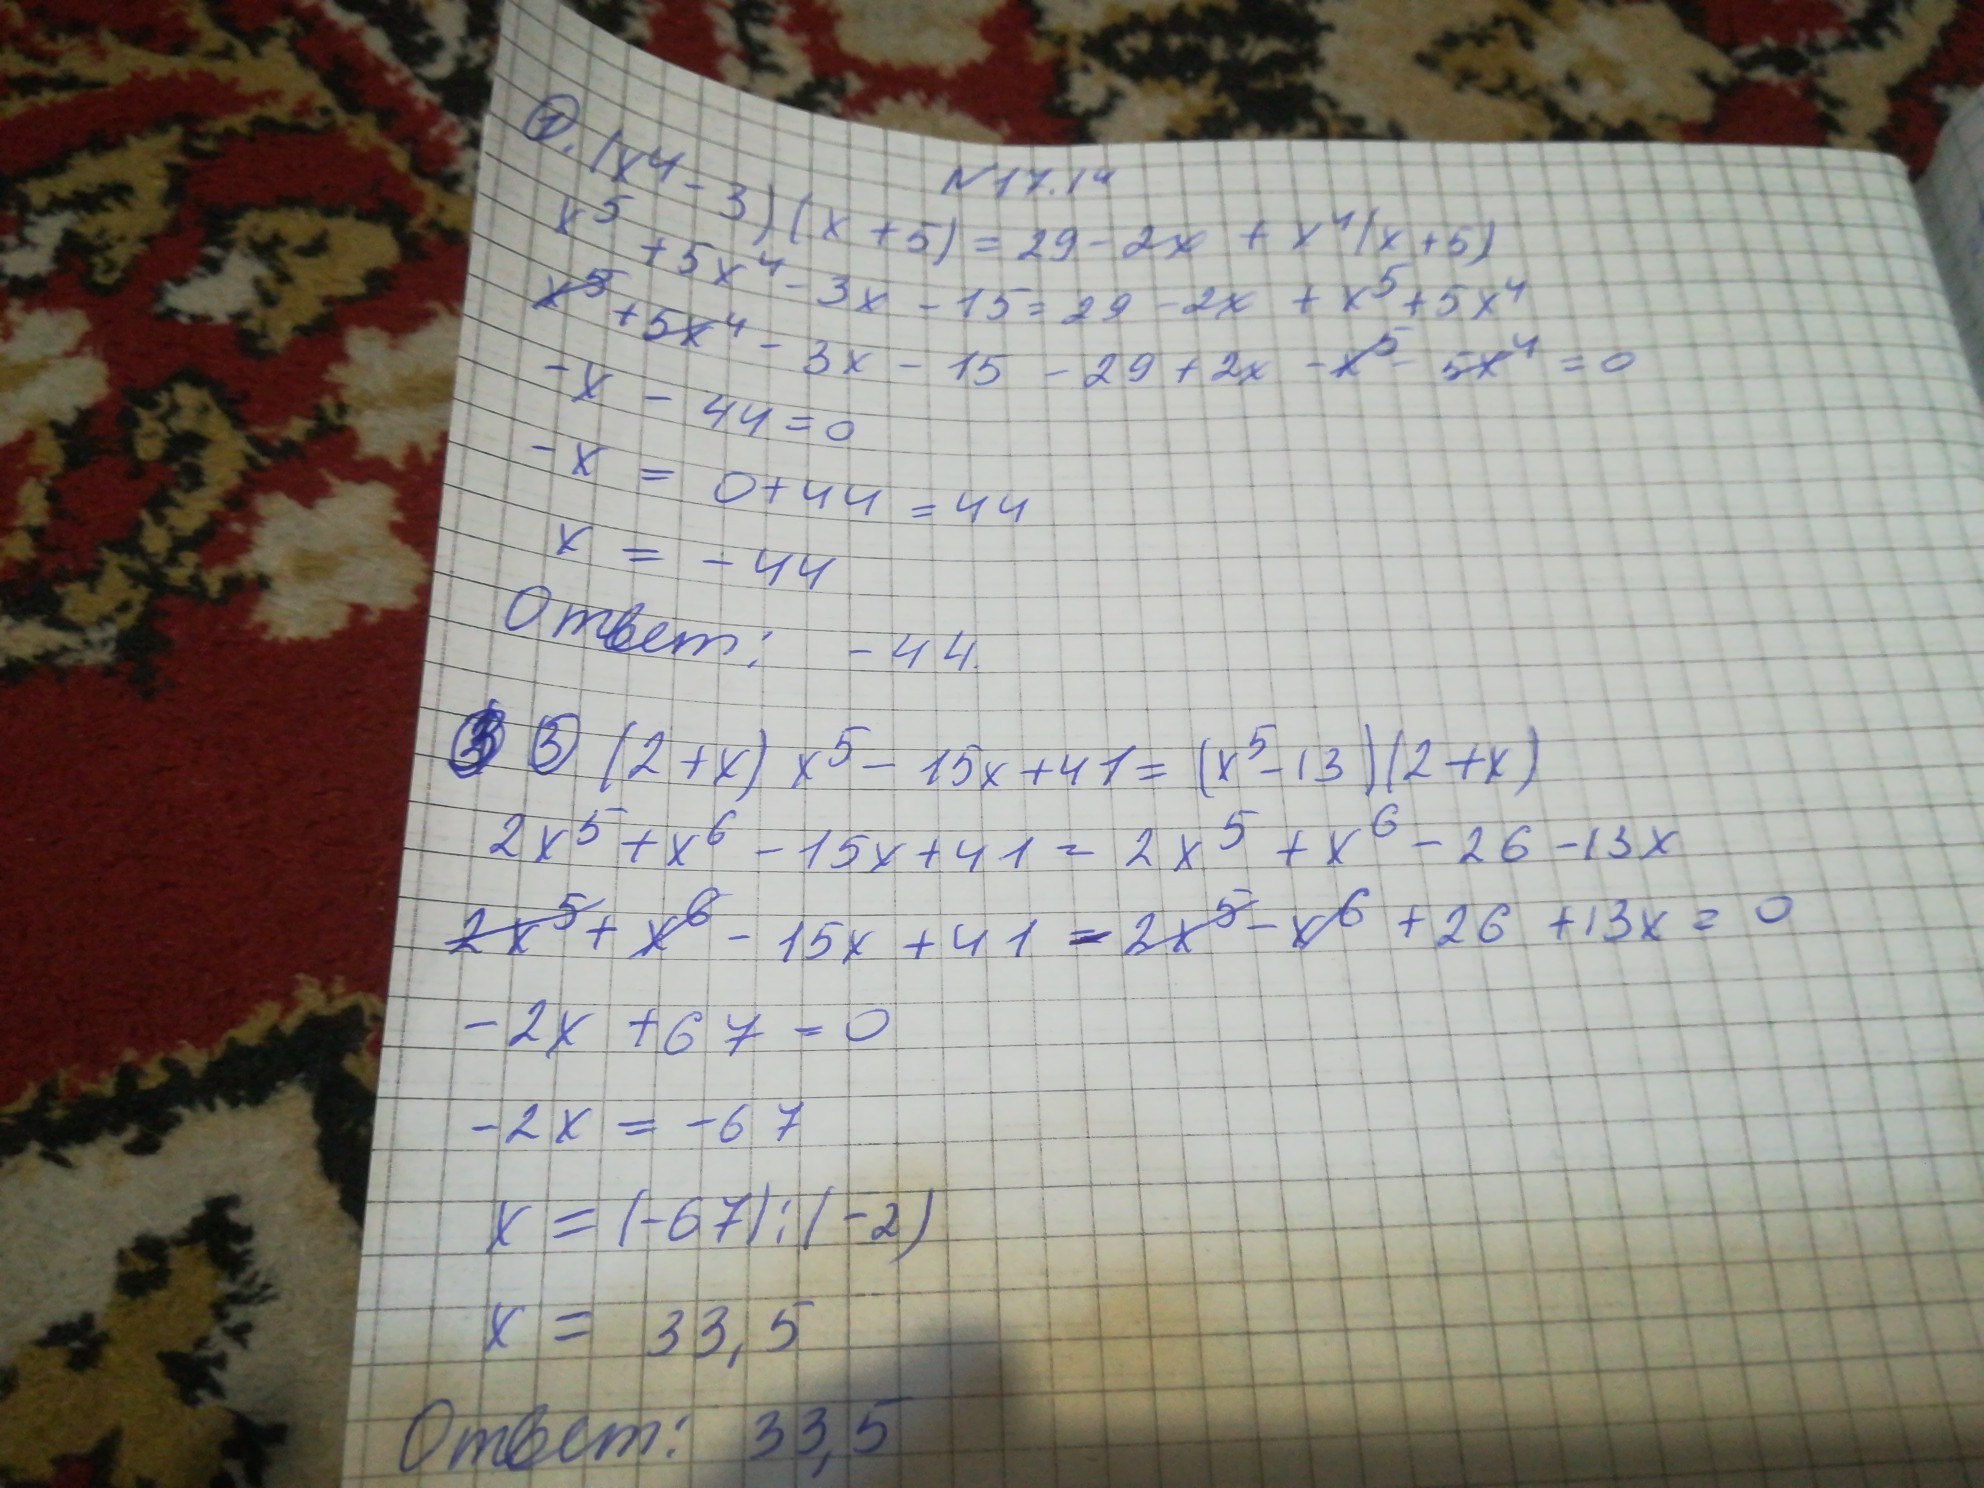 N17.14
①. (x⁴ - 3)(x + 5) = 29 - 2x + x⁴(x + 5)
x⁵ + 5x⁴ - 3x - 15 = 29 - 2x + x⁵ + 5x⁴
x⁵ + 5x⁴ - 3x - 15 - 29 + 2x - x⁵ - 5x⁴ = 0
-x - 44 = 0
-x = 0 + 44 = 44
x = -44
Ответ: -44.
③ (2+x) x⁵ - 15x + 41 = (x⁵ - 13)(2+x)
2x⁵ + x⁶ - 15x + 41 = 2x⁵ + x⁶ - 26 - 13x
2x⁵ + x⁶ - 15x + 41 - 2x⁵ - x⁶ + 26 + 13x = 0
-2x + 67 = 0
-2x = -67
x = (-67):(-2)
x = 33,5
Ответ: 33,5